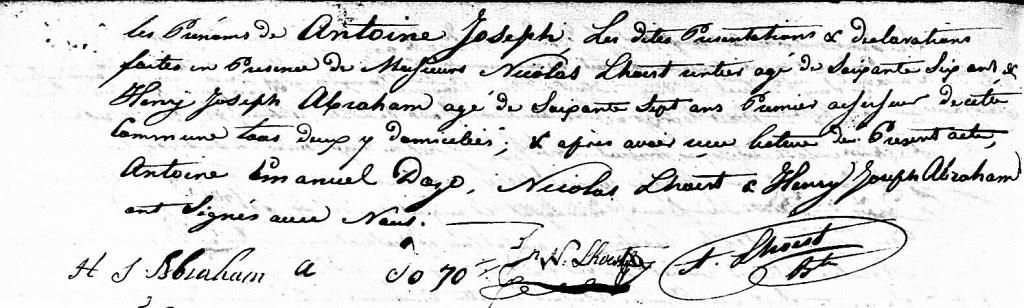 les Prénoms de Antoine Joseph, Les dites Presentations & declarations
faites en Presence de Messieurs Nicolas Lhoist rentier agé de Soixante Six ans &
Henry Joseph Abraham agé de Soixante Sept ans Premier assesseur de cette
Commune tous deux y domiciliés; & apres avoir recu lecture du Present acte,
Antoine Emanuel Dayo, Nicolas Lhoist & Henry Joseph Abraham
ont Signés avec Nous.
H J Abraham a N. Lhoist Lhoist